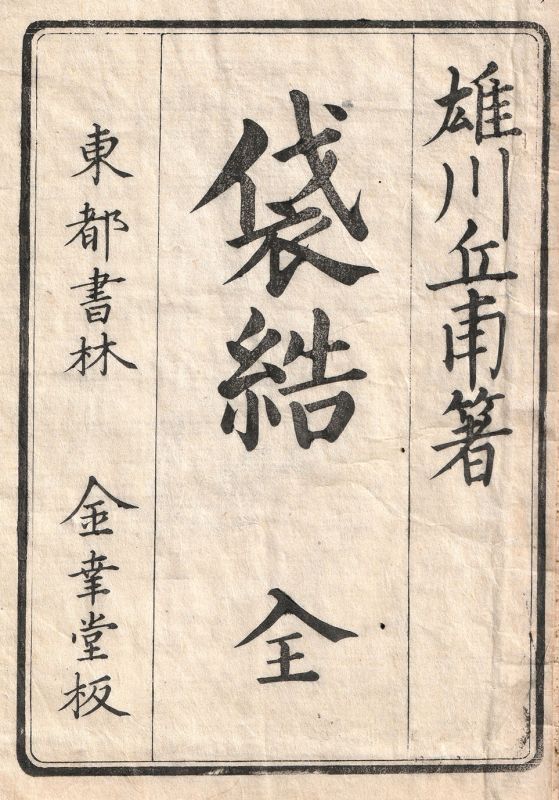 雄川丘甫箸
袋結 全
東都書林 金幸堂板